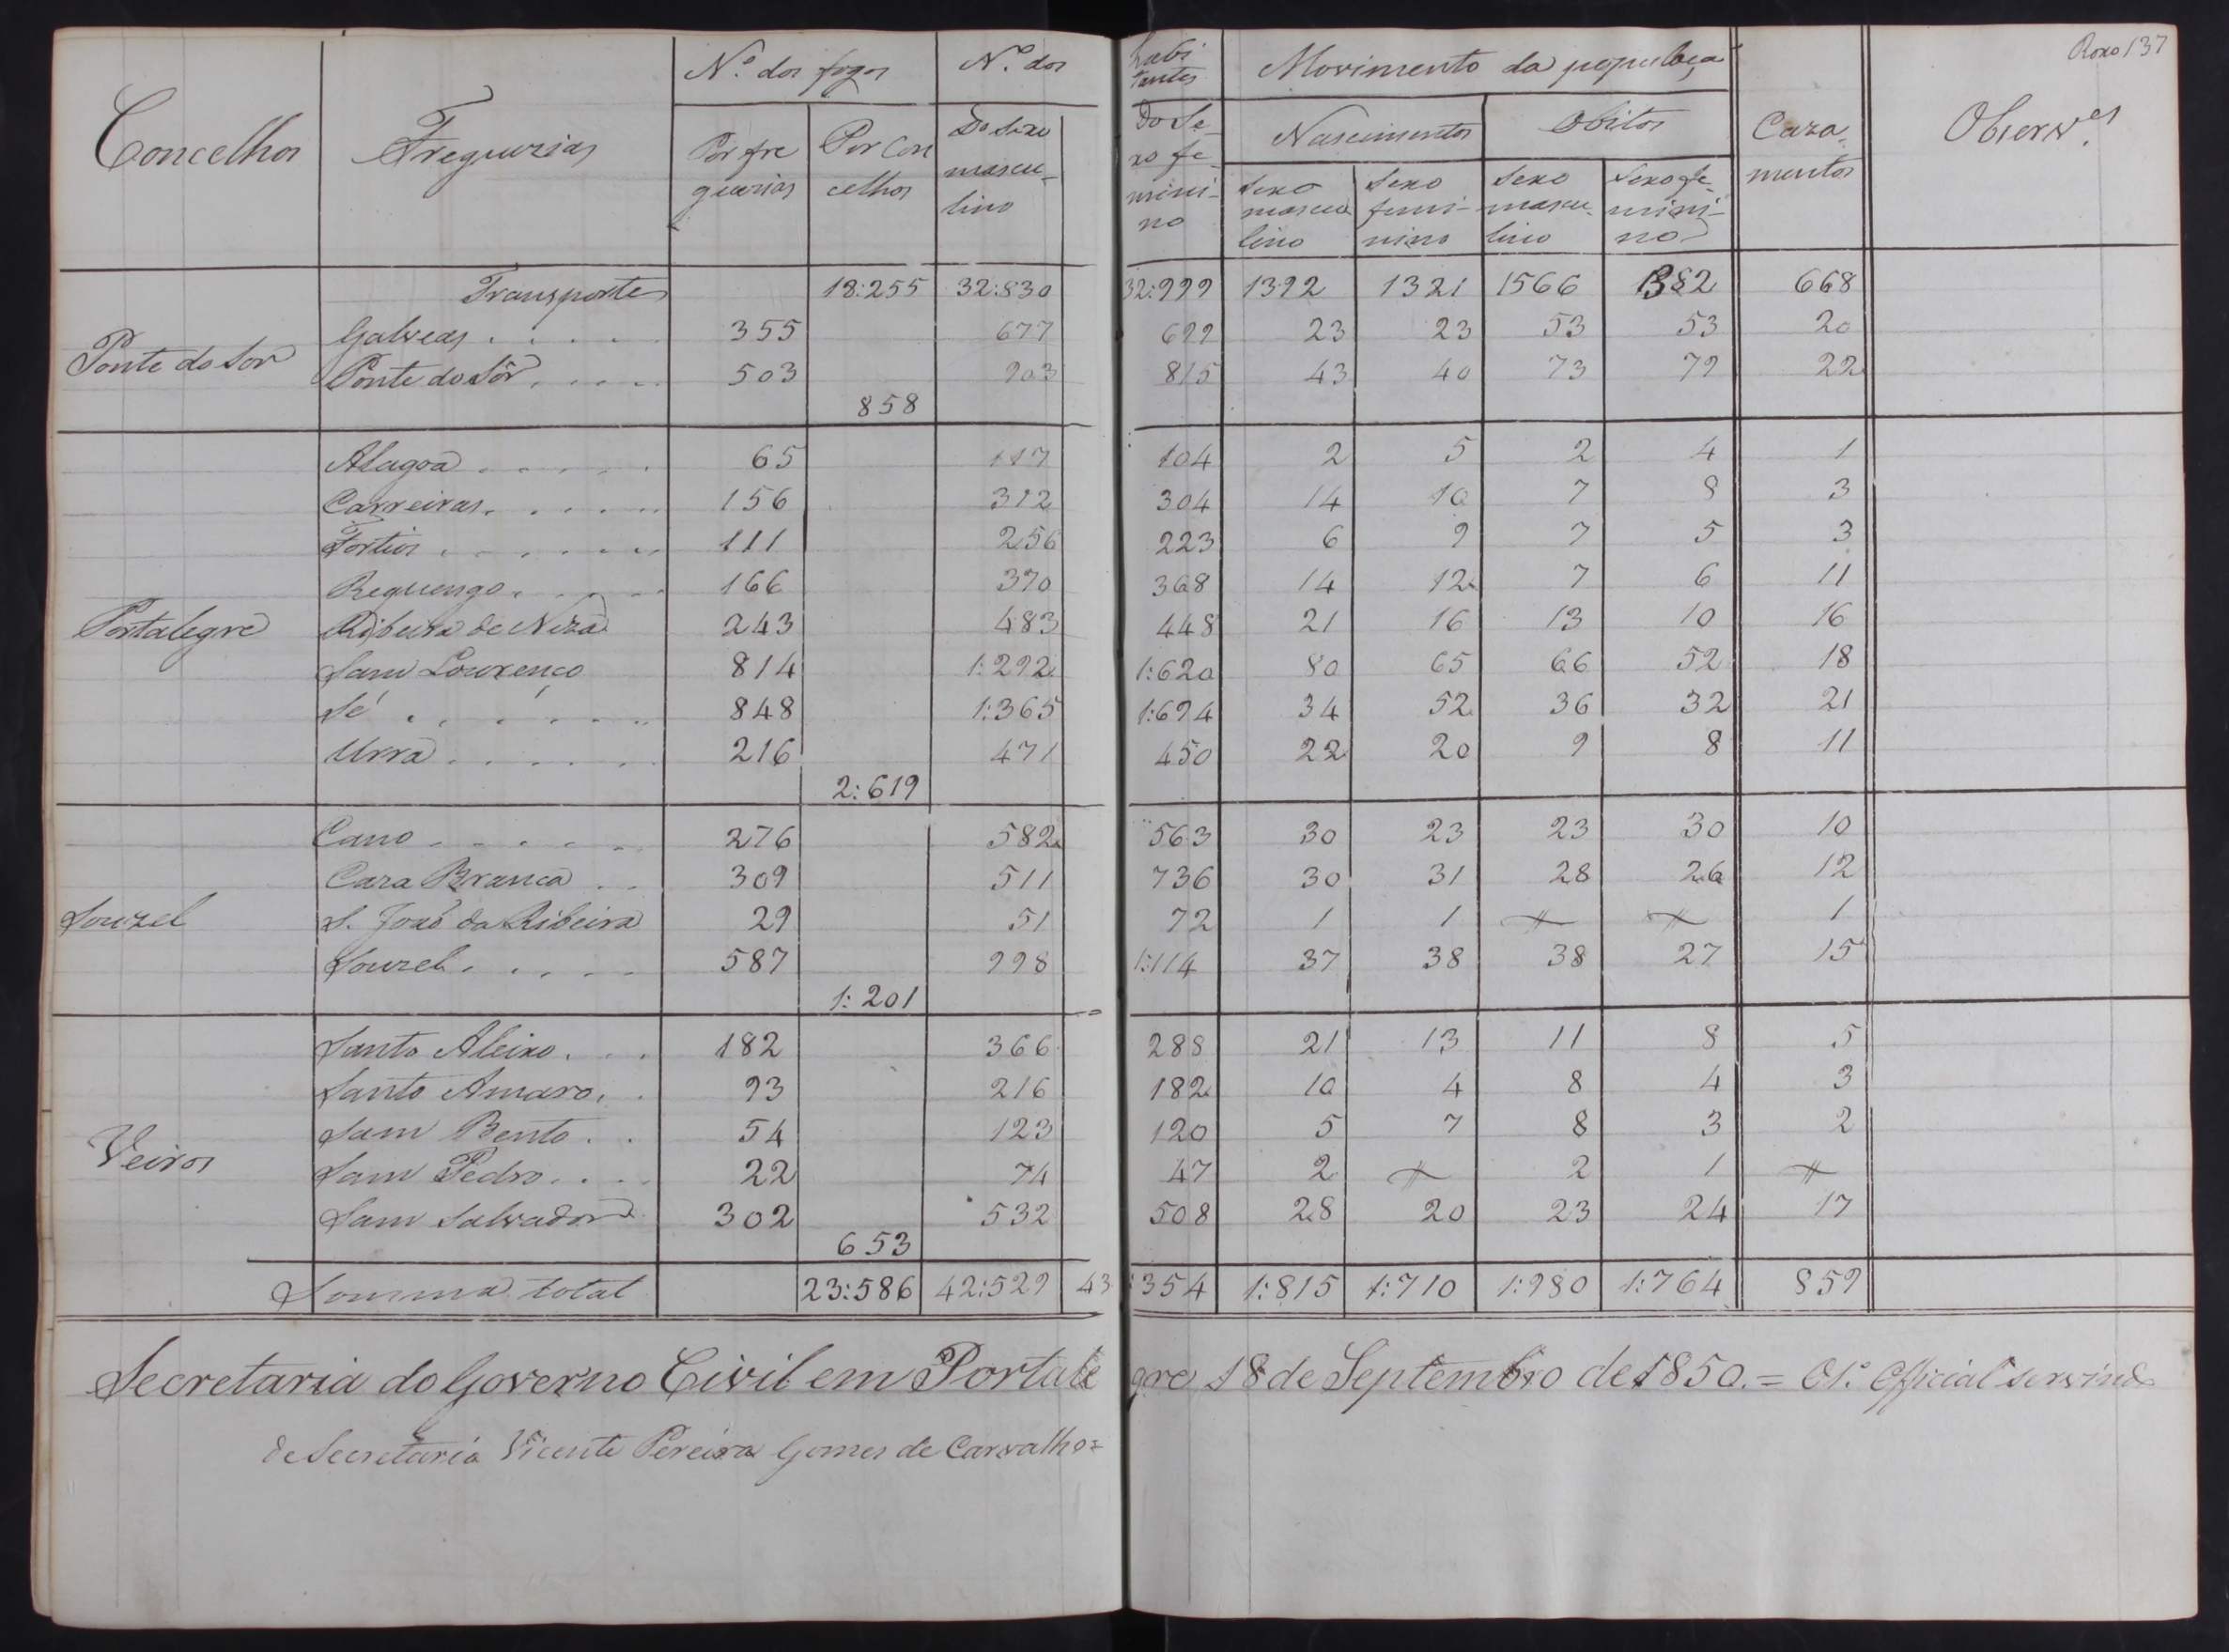 Roxo 137
Concelhos Freguezias Nº dos fogos Nº dos habitantes Movimento da populaçaõ Cazamentos Observ.es
Por freguezias Por Concelhos Do Sexo masculino Do Sexo feminino Nascimentos Obitos
Sexo masculino Sexo feminino Sexo masculino Sexo feminino
Transporte 18:255 32:830 32:999 1392 1321 1566 1382 668
Ponte do Sor
Galveas 355 677 699 23 23 53 53 20
Ponte do Sôr 503 903 815 43 40 73 79 22
858
Portalegre
Alagoa 65 117 104 2 5 2 4 1
Carreiras 156 312 304 14 10 7 8 3
Fortios 111 256 223 6 9 7 5 3
Reguengo 166 370 368 14 12 7 6 11
Ribeira de Niza 243 483 448 21 16 13 10 16
Sam Lourenço 814 1:292 1:620 80 65 66 52 18
Sé 848 1:365 1:694 34 52 36 32 21
Urra 216 471 450 22 20 9 8 11
2:619
Souzel
Cano 276 582 563 30 23 23 30 10
Caza Branca 309 511 736 30 31 28 26 12
S. Joaõ da Ribeira 29 51 72 1 1 " " 1
Souzel 587 998 1:114 37 38 38 27 15
1:201
Veiros
Santo Aleixo 182 366 288 21 13 11 8 5
Santo Amaro 93 216 182 10 4 8 4 3
Sam Bento 54 123 120 5 7 8 3 2
Sam Pedro 22 74 47 2 " 2 1 "
Sam Salvador 302 532 508 28 20 23 24 17
653
Somma total 23:586 42:529 43:354 1:815 1:710 1:980 1:764 859
Secretaria do Governo Civil em Portalegre 18 de Septembro de 1850. = O 1.º Official servindo
de Secretario Vicente Pereira Gomes de Carvalho =